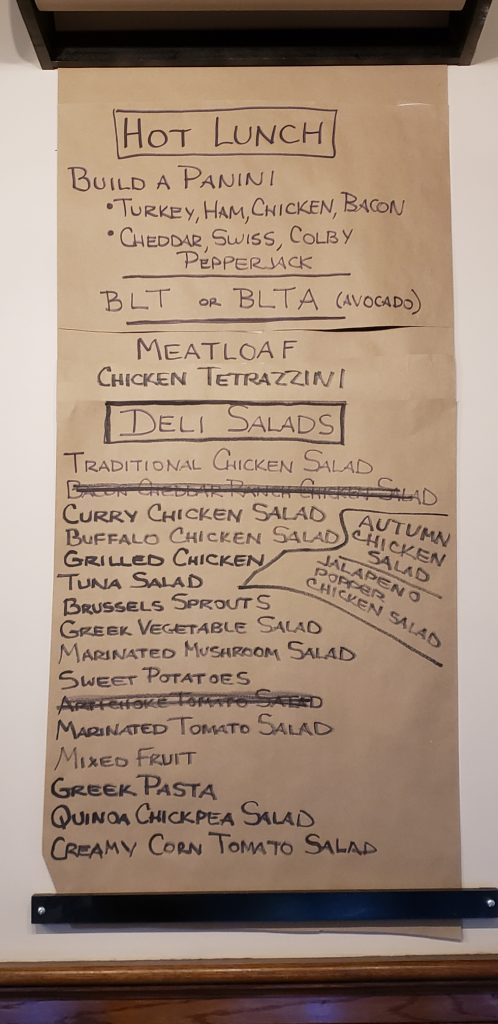 HOT LUNCH
BUILD A PANINI
• TURKEY, HAM, CHICKEN, BACON
• CHEDDAR, SWISS, COLBY
PEPPERJACK
BLT OR BLTA (AVOCADO)
MEATLOAF
CHICKEN TETRAZZINI
DELI SALADS
TRADITIONAL CHICKEN SALAD
BACON CHEDDAR RANCH CHICKEN SALAD
CURRY CHICKEN SALAD
BUFFALO CHICKEN SALAD
GRILLED CHICKEN
TUNA SALAD
AUTUMN
CHICKEN
SALAD
JALAPENO
POPPER
CHICKEN SALAD
BRUSSELS SPROUTS
GREEK VEGETABLE SALAD
MARINATED MUSHROOM SALAD
SWEET POTATOES
ARTICHOKE TOMATO SALAD
MARINATED TOMATO SALAD
MIXED FRUIT
GREEK PASTA
QUINOA CHICKPEA SALAD
CREAMY CORN TOMATO SALAD